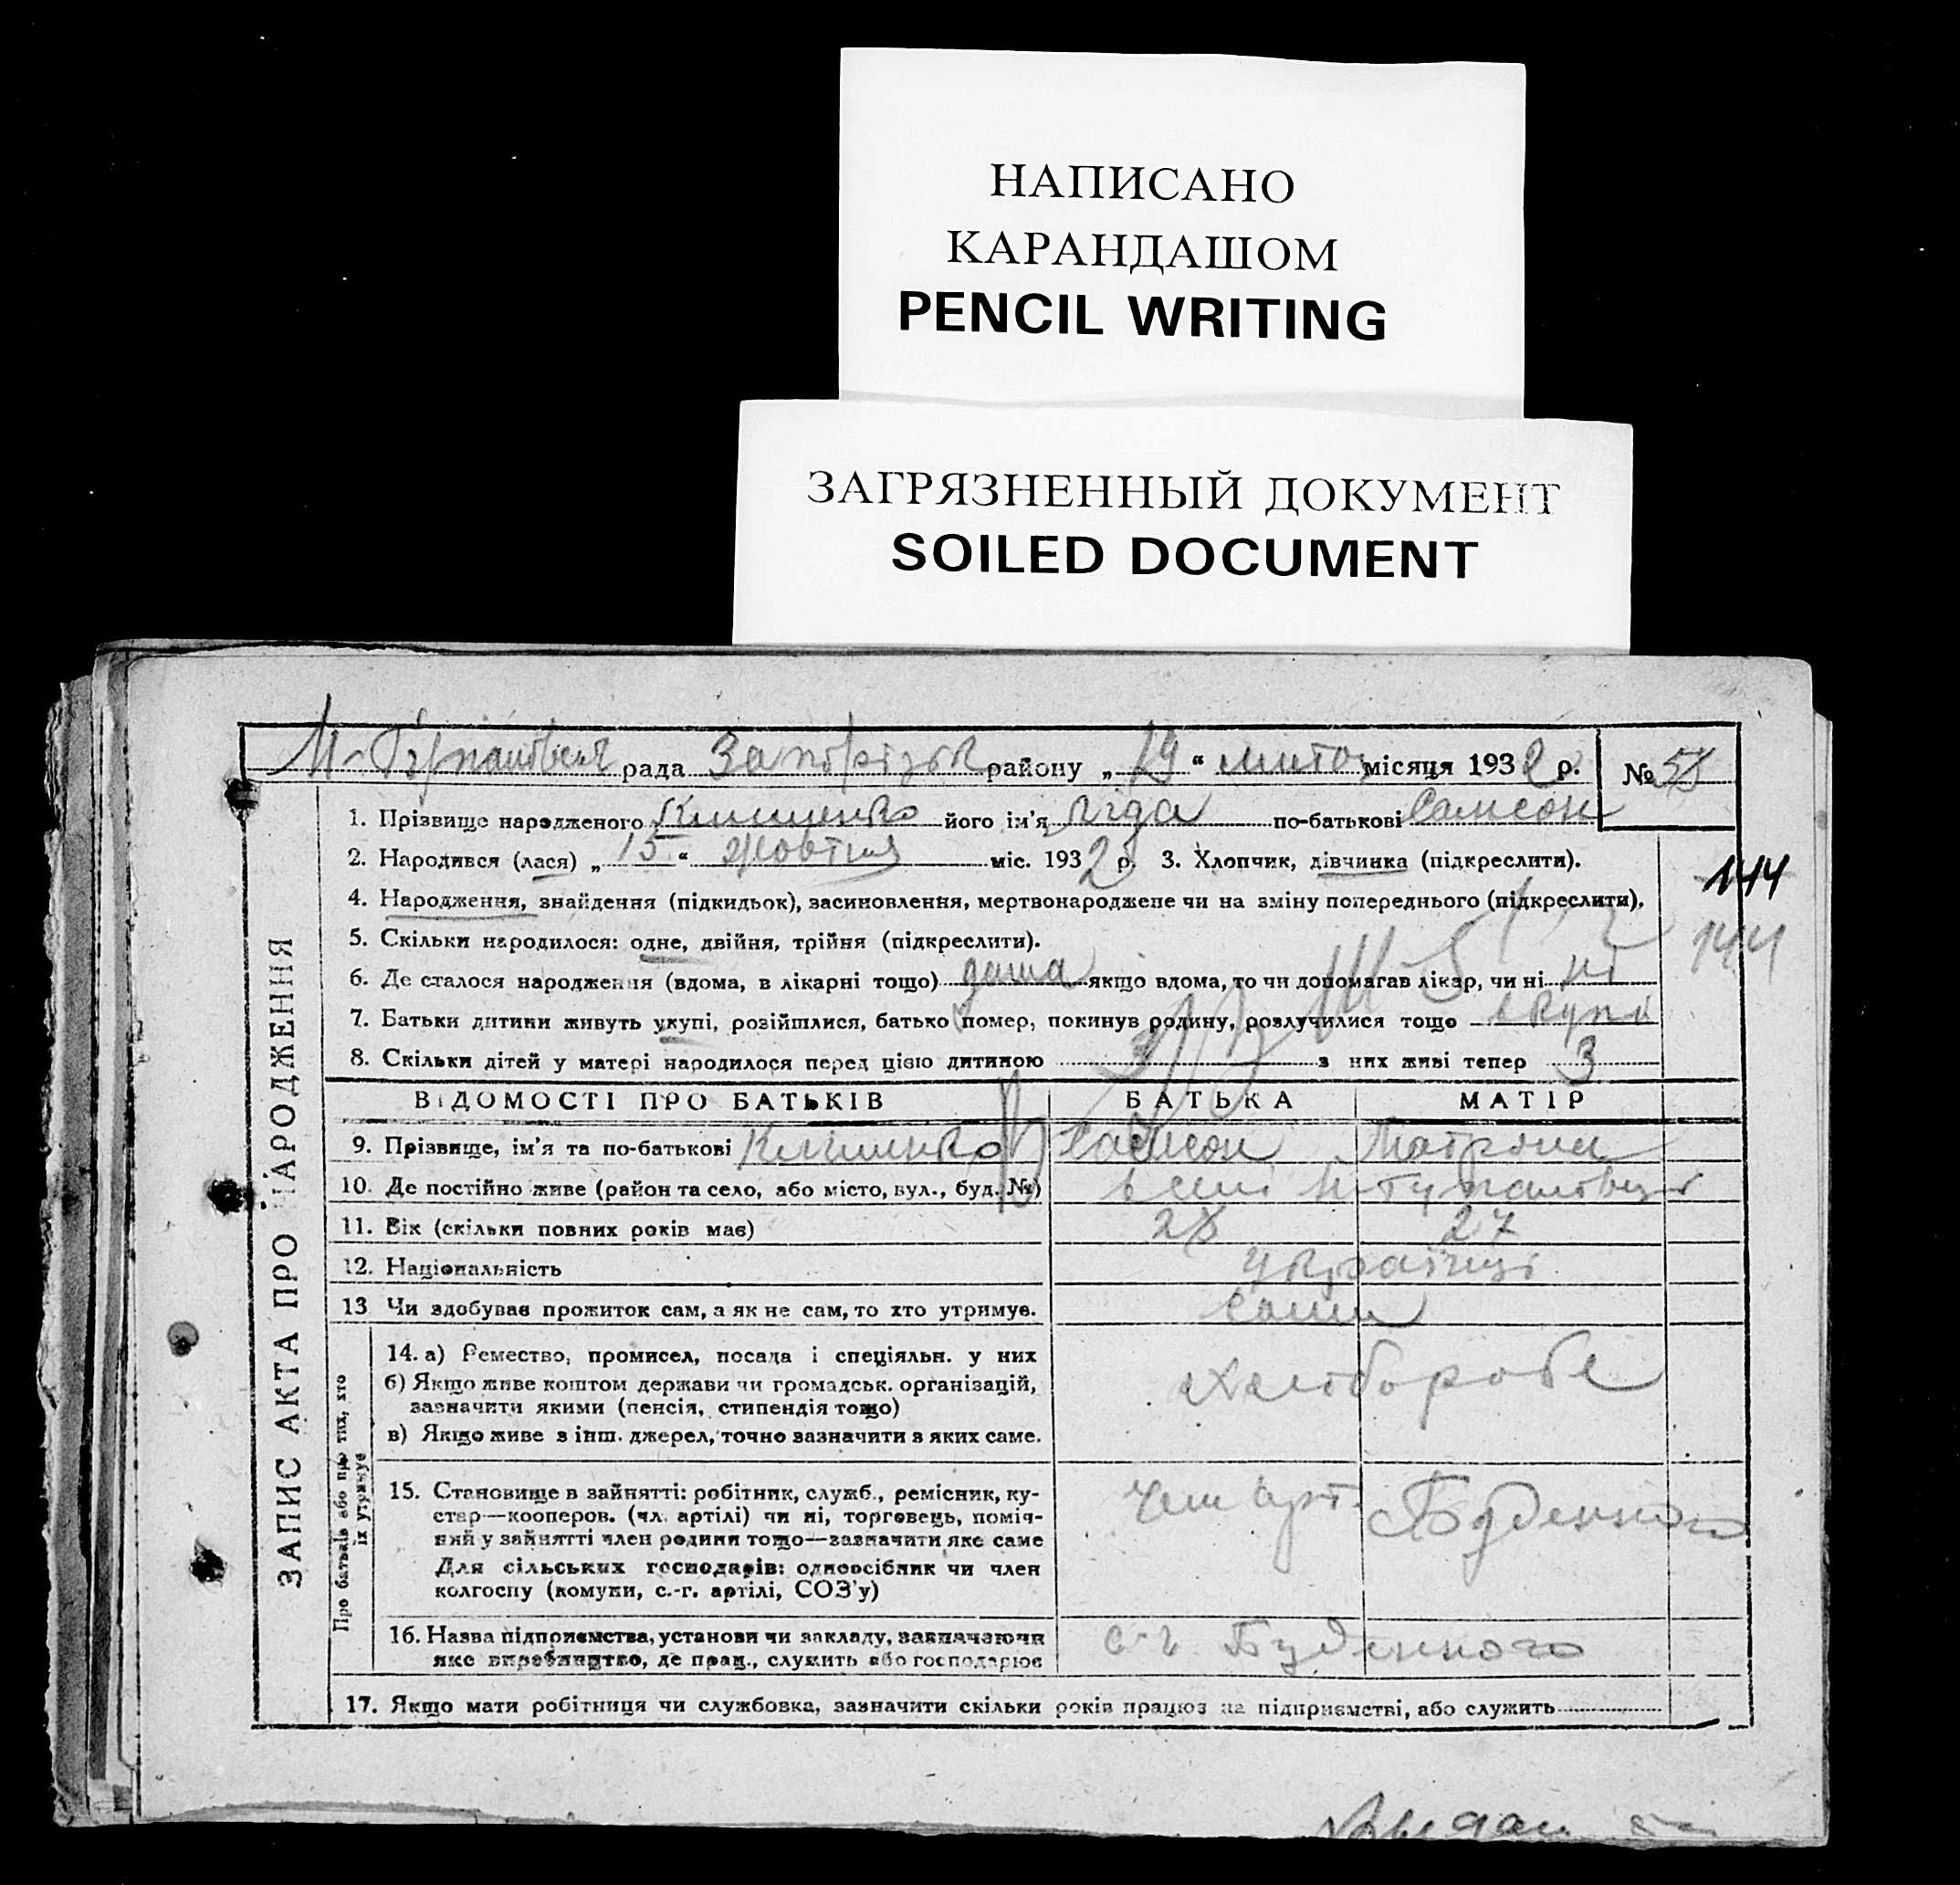 НАПИСАНО
КАРАНДАШОМ
PENCIL WRITING
ЗАГРЯЗНЕННЫЙ ДОКУМЕНТ
SOILED DOCUMENT
рада району „ 19 “ місяця 1932 р. №
1. Прізвище народженого його ім'я Ліда по-батькові Самсон
2. Народився (лася) „ 15 “ жовтня міс. 1932 р. 3. Хлопчик, дівчинка (підкреслити).
144
4. Народження, знайдення (підкидьок), засиновлення, мертвонароджене чи на зміну попереднього (підкреслити).
144
5. Скільки народилося: одне, двійня, трійня (підкреслити).
6. Де сталося народження (вдома, в лікарні тощо) дома якщо вдома, то чи допомагав лікар, чи ні ні
7. Батьки дитини живуть укупі, розійшлися, батько помер, покинув родину, розлучилися тощо вкупі
8. Скільки дітей у матері народилося перед цією дитиною 3 з них живі тепер 3
ВІДОМОСТІ ПРО БАТЬКІВ БАТЬКА МАТІР
9. Прізвище, ім'я та по-батькові Самсон Мотрона
10. Де постійно живе (район та село, або місто, вул., буд. №) в селі
11. Вік (скільки повних років має) 28 27
12. Національність Українці
13 Чи здобуває прожиток сам, а як не сам, то хто утримує. Сами
14. а) Ремество, промисел, посада і спеціяльн. у них
б) Якщо живе коштом держави чи громадськ. організацій,
зазначити якими (пенсія, стипендія тощо)
в) Якщо живе з інш. джерел, точно зазначити з яких саме.
Хлібороби
15. Становище в зайнятті: робітник, служб., ремісник, ку-
стар—кооперов. (чл. артілі) чи ні, торговець, поміч-
ний у зайнятті член родини тощо—зазначити яке саме
Для сільських господарів: одноосібник чи член
колгоспу (комуни, с.-г. артілі, СОЗ'у)
Член арт. Буденного
16. Назва підприємства, установи чи закладу, зазначаючи
яке виробництво, де прац., служить або господарює
с-г Буденного
17. Якщо мати робітниця чи службовка, зазначити скільки років працює на підприємстві, або служить
ЗАПИС АКТА ПРО НАРОДЖЕННЯ
Про батьків або про тих, хто
їх утримує